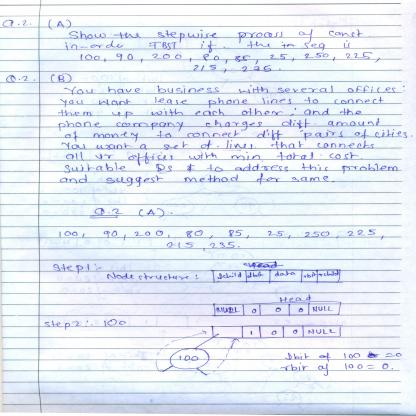 Q.2. (A)
Show the stepwise process of const
in-order TBST if the in seq is
100, 90, 200, 80, 85, 25, 250, 225,
215, 235.
Q.2. (B)
You have business with several offices:
you want lease phone lines to connect
them up with each other; and the
phone company charges diff amount
of money to connect diff pairs of cities.
You want a set of lines that connects
all ur offices with min total cost.
Suitable Ds $ to address this problem
and suggest method for same.
Q.2 (A).
100, 90, 200, 80, 85, 25, 250, 225,
215, 235.
Step 1:- Head
Node structure: lchild lbit data rbit rchild
Head
NULL 0 0 0 NULL
step 2:- 100
1 0 0 NULL
100
lbit of 100 = 0
rbit of 100 = 0.